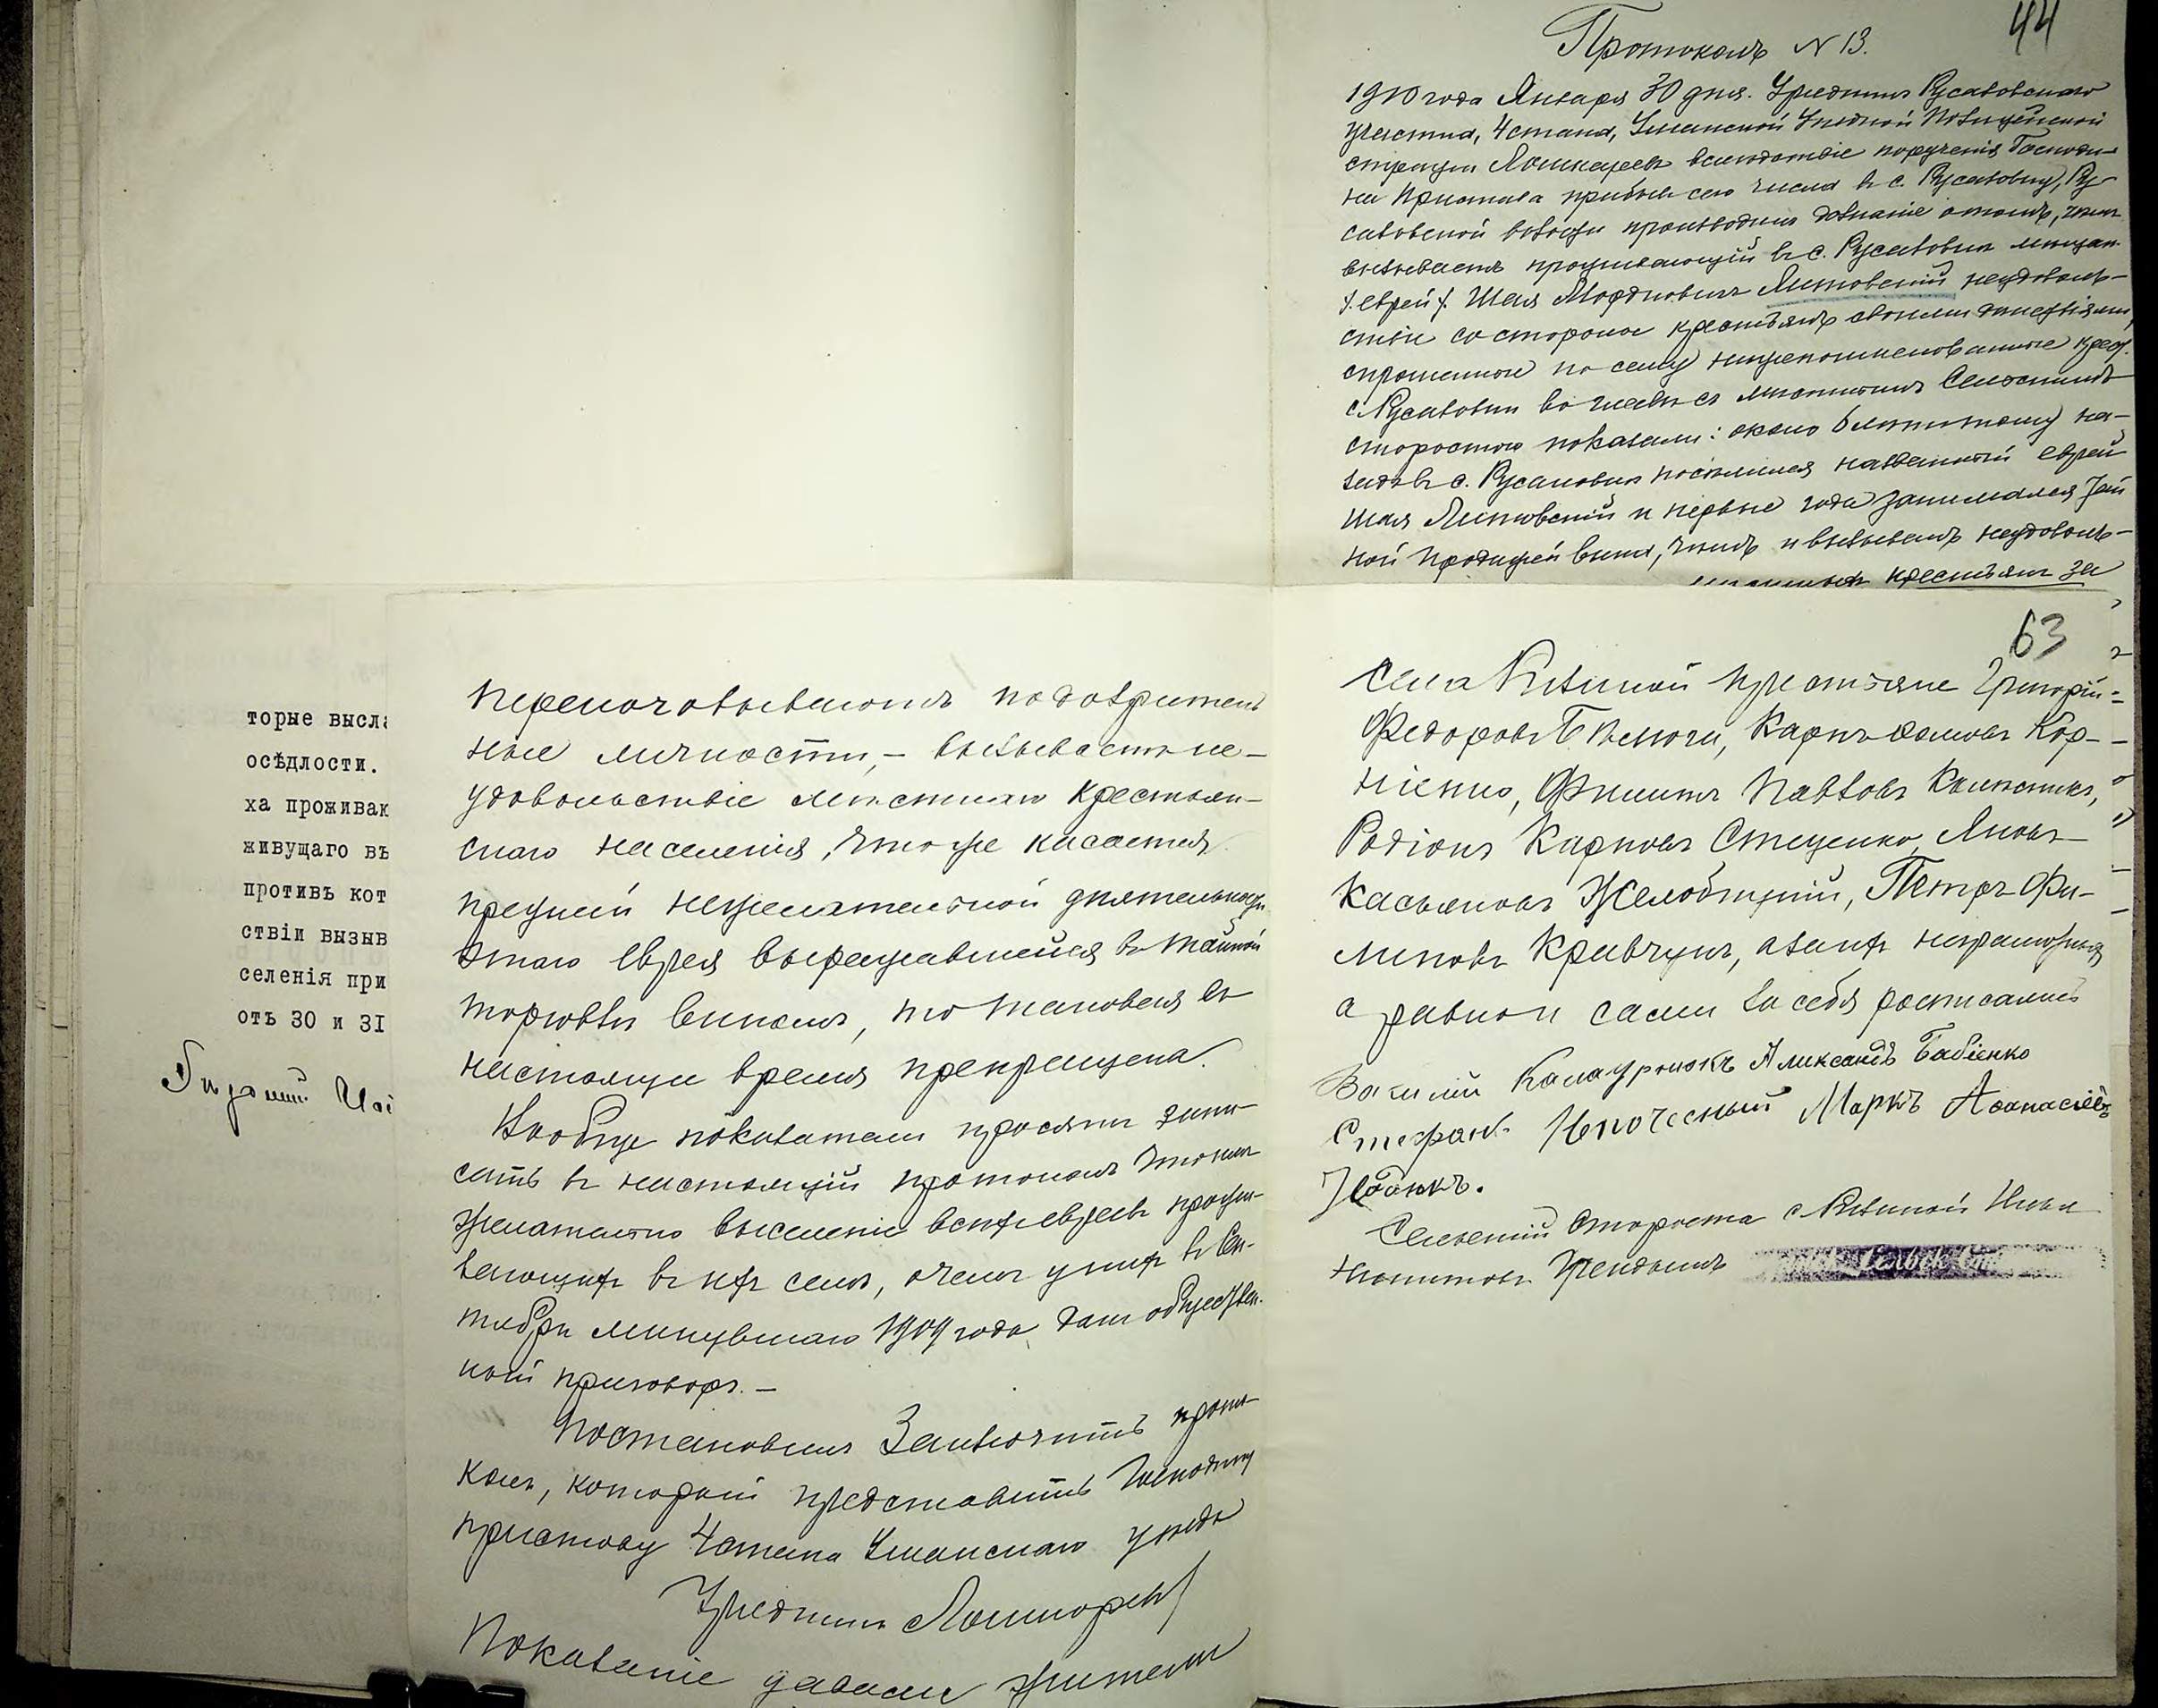 44
Протоколъ N 13.
1910 года Января 30 дня. Урядникъ Русаловскаго
участка, 4 стана, Уманской Уѣздной Полицейской
стражи Лошкаревъ вслѣдствіе порученія Господи-
на Пристава прибылъ сего числа въ с. Русаловку, Ру-
саловской волости производилъ дознаніе о томъ, чѣмъ
вызываетъ проживающій въ с. Русаловкѣ мѣщан.
/. еврей /. Шая Мордковичъ Литовскій неудоволь-
ствіе со стороны крестьянъ своими дѣйствіями,
спрошенные по сему нижепоименованные крест.
с. Русаловки во главѣ съ мѣстнымъ Сельскимъ
старостою показали: около 6 лѣтъ тому на-
задъ въ с. Русаловкѣ поселился названный еврей
Шая Литовскій и первые года занимался тай
ной продажей вина, чѣмъ и вызывалъ неудоволь-
крестьянъ за
63
торые высла
осѣдлости.
ха проживак
живущаго въ
противъ кот
ствіи вызыв
селенія при
отъ 30 и 31
переночовываютъ подозритель
ные личности, - вызываетъ не-
удовольствіе мѣстнаго крестьян-
скаго населенія, что же касается
прежней нежелательной дѣятельности
этого еврея выражавшейся въ тайной
торговлѣ виномъ, то таковая въ
настоящее время прекращена.
Вообще показатели просятъ запи-
сать въ настоящій протоколъ что имъ
желательно выселеніе всѣхъ евреевъ прожи-
вающихъ въ ихъ селѣ, о чемъ у нихъ въ Сен-
тябрѣ минувшаго 1909 года данъ обществен-
ный приговоръ. -
Постановилъ Заключить прото-
колъ, который представить Господину
приставу 4 стана Уманскаго уѣзда
Урядникъ Лошкаревъ
Показаніе давали жители
села Кызиной крестьяне Григорій
Федоровъ Карпъ Кор-
ніенко, Филиппъ Павловъ
Родіонъ Карповъ Стеценко, Яковъ
Касьяновъ Желобицкій, Петръ Фи-
липовъ Кравчукъ, а за ихъ неграмотныхъ
а равно и сами за себя росписались
Василій Александъ Бабіенко
Стефанъ Непочесный Маркъ Афанасіевъ
Сельскій Староста с. Кызиной